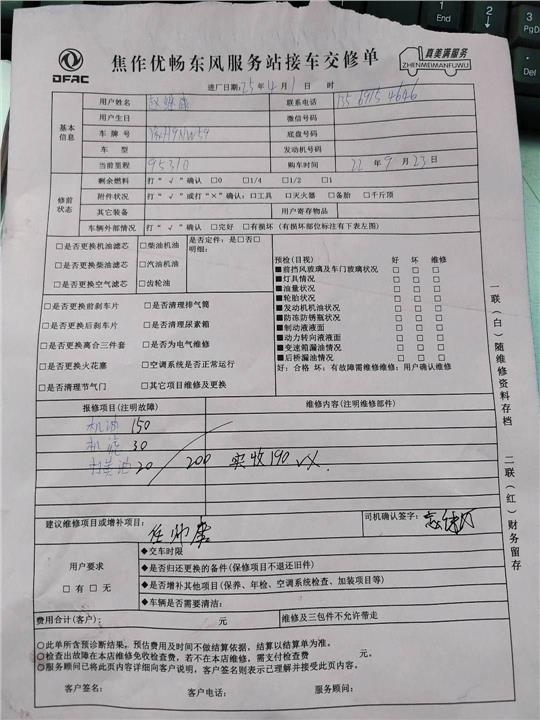 DFAC
焦作优畅东风服务站接车交修单
真美满服务
ZHENMEIMANFUWU
进厂日期: 25年4月1日 时
基本信息
用户姓名 联系电话
用户生日 微信号码
车牌号 底盘号码
车 型 发动机号码
当前里程 95310 购车时间 22年9月23日
修前状态
剩余燃料 打“√”确认 □0 □1/4 □1/2 □1
附件状况 打“√”或打“×”确认: □工具 □灭火器 □备胎 □千斤顶
其它装备 用户寄存物品
车辆外部情况 打“√”确认 □完好 □有损坏 (有损坏部位标注有下表左图)
□是否更换机油滤芯 □柴油机油 是否定件: 是□否□
明细:
□是否更换柴油滤芯 □汽油机油
□是否更换空气滤芯 □齿轮油
□是否更换前刹车片 □是否清理排气筒
□是否更换后刹车片 □是否清理尿素箱
□是否更换离合三件套 □是否为电气维修
□是否更换火花塞 □空调系统是否正常运行
□是否清理节气门 □其它项目维修及更换
预检(目视) 好 坏 维修
■前挡风玻璃及车门玻璃状况 □ □ □
■灯具情况 □ □ □
■油量状况 □ □ □
■轮胎状况 □ □ □
■发动机机油状况 □ □ □
■防冻防锈瓶状况 □ □ □
■制动液液面 □ □ □
■动力转向液液面 □ □ □
■变速箱漏油情况 □ □ □
■后桥漏油情况 □ □ □
好: 合格 坏: 有故障需维修维修: 用户确认维修
报修项目(注明故障) 维修内容(注明维修部件)
机油 150
机滤 30
扫黄油 20 200 实收190
建议维修项目或增补项目: 任帅康 司机确认签字:
用户要求
□有 □无
◆交车时限
◆是否归还更换的备件(保修项目不退还旧件)
◆是否增补其他项目(保养、年检、空调系统检查、加装项目等)
◆车辆是否需要清洁:
费用合计(客户): 元 维修及三包件不允许带走
○此单所含预诊断结果。预估费用及时间不做结算依据, 结算以结算单为准。
○检查出故障在本店维修免收检查费, 若不在本店维修, 需支付检查费 元。
○服务顾问已将此页内容详细向客户说明, 客户签名则表示已理解并接受此页内容。
客户签名: 客户电话: 服务顾问:
一联(白)随维修资料存档 二联(红)财务留存